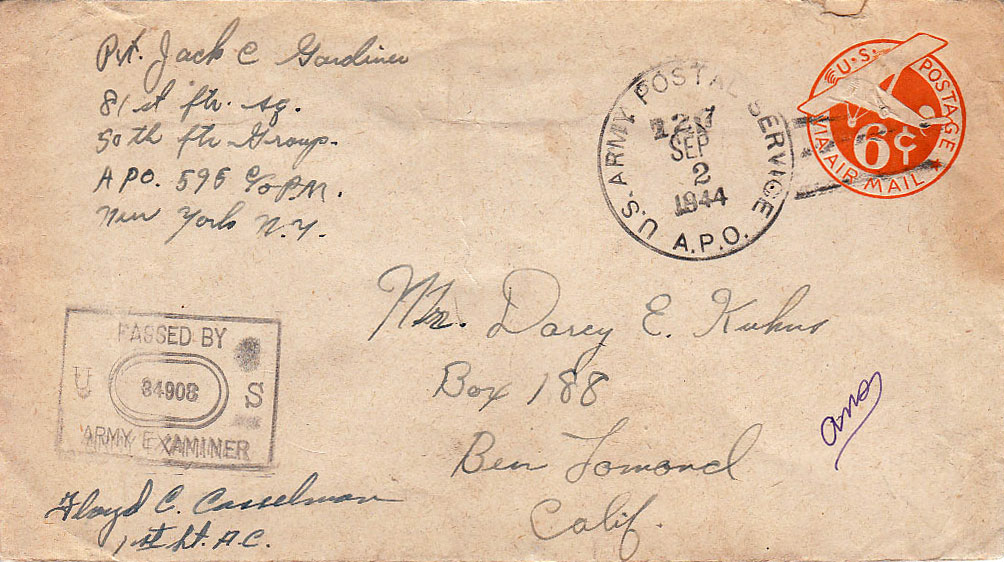 Pvt. Jack C Gardiner
81st ftr. sq.
50th ftr Group.
APO. 595 c/o P.M.
New York N.Y.
U.S. ARMY POSTAL SERVICE
SEP
2
1944
A.P.O.
U.S. POSTAGE
6¢
VIA AIR MAIL
Mr. Darcy E. Kuhns
Box 188
Ben Lomond
Calif.
PASSED BY
U 34908 S
ARMY EXAMINER
Floyd C. Casselman
1st Lt. A.C.